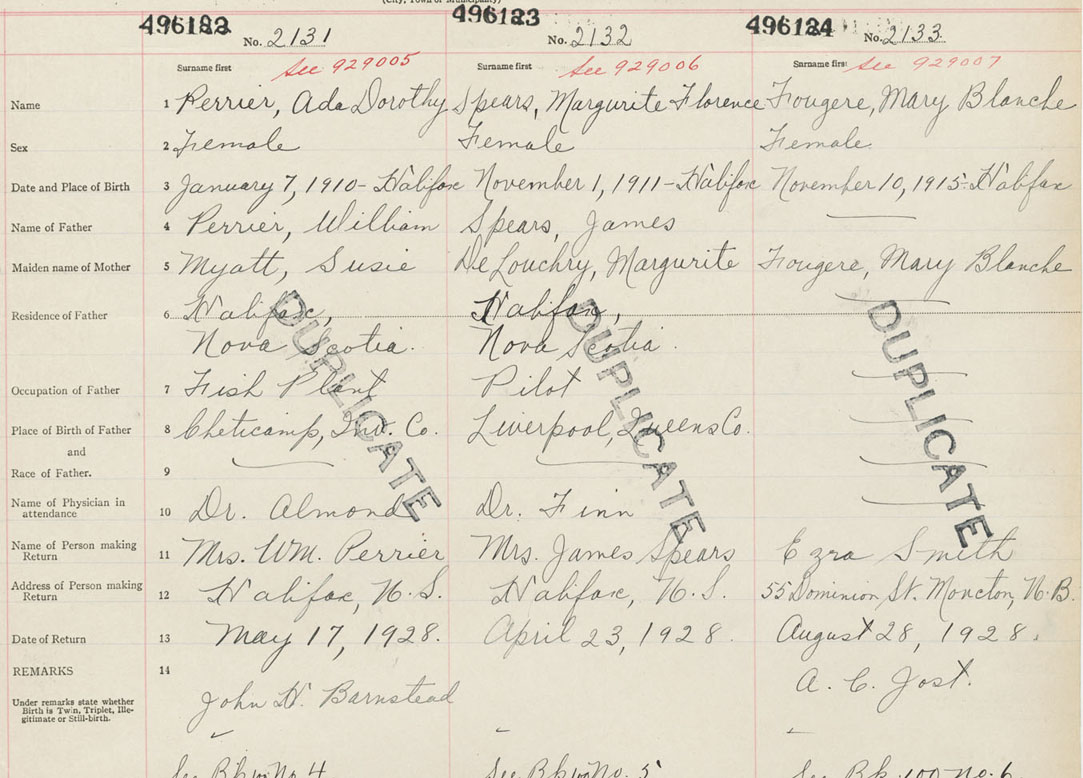 (City, Town or Municipality)
496182 496183 496184
No. 2131 No. 2132 No. 2133
Surname first See 929005 Surname first See 929006 Surname first See 929007
Name 1 Perrier, Ada Dorothy Spears, Margurite Florence Fougere, Mary Blanche
Sex 2 Female Female Female
Date and Place of Birth 3 January 7, 1910 - Halifax November 1, 1911 - Halifax November 10, 1915 - Halifax
Name of Father 4 Perrier, William Spears, James
Maiden name of Mother 5 Myatt, Susie DeLouchry, Margurite Fougere, Mary Blanche
Residence of Father 6 Halifax, Halifax,
Nova Scotia. Nova Scotia.
DUPLICATE DUPLICATE DUPLICATE
Occupation of Father 7 Fish Plant Pilot
Place of Birth of Father 8 Cheticamp, Inv. Co. Liverpool, Queens Co.
and
Race of Father. 9
Name of Physician in
attendance 10 Dr. Almond Dr. Finn
Name of Person making
Return 11 Mrs. WM. Perrier Mrs. James Spears Ezra Smith
Address of Person making
Return 12 Halifax, N.S. Halifax, N.S. 55 Dominion St. Moncton, N.B.
Date of Return 13 May 17, 1928. April 23, 1928. August 28, 1928.
REMARKS 14 A. C. Jost.
Under remarks state whether
Birth is Twin, Triplet, Ille-
gitimate or Still-birth.
John H. Barnstead
See Bk 100 No. 4 See Bk 100 No. 5 See Bk. 100 No. 6